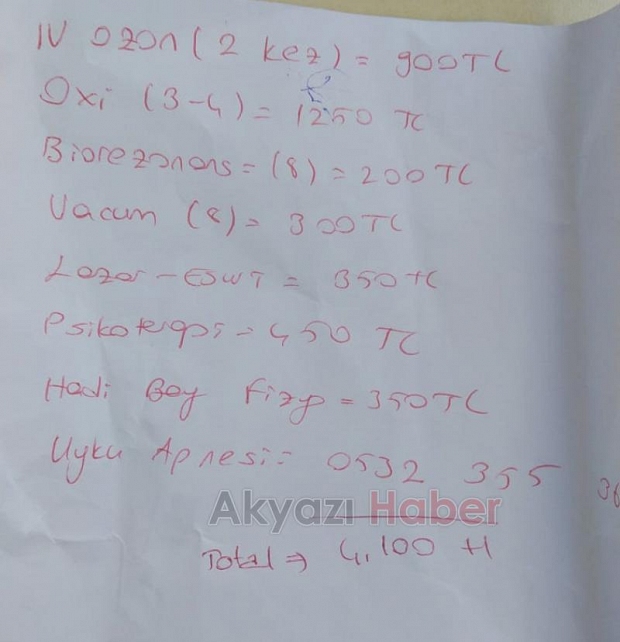 IV Ozon (2 kez) = 900TL
Oxi (3-4) = 1250 TL
Biorezonans = (8) = 200TL
Vacum (8) = 300TL
Lazer - ESWT = 350 TL
Psikoterapi - 450 TL
Hadi Bey Fizyo = 350TL
Uyku Apnesi = 0532 355 36
Akyazı Haber
Total ⇒ 4.100 tl